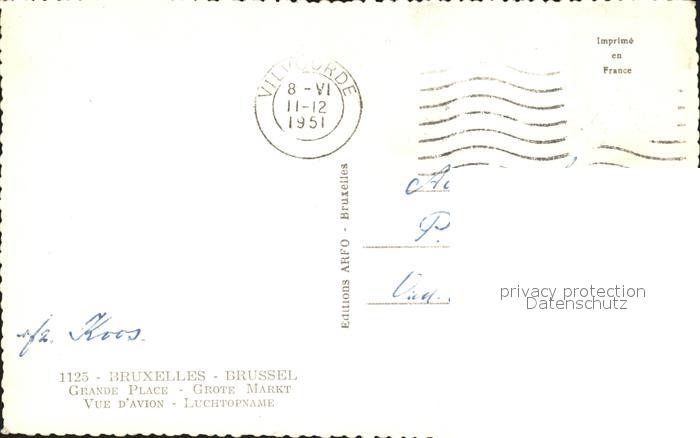 Imprimé
en
France
VILVOORDE
8 - VI
11-12
1951
Editions ARFO - Bruxelles
P.
privacy protection
Datenschutz
afz. Koos.
1125 - BRUXELLES - BRUSSEL
GRANDE PLACE - GROTE MARKT
VUE D'AVION - LUCHTOPNAME